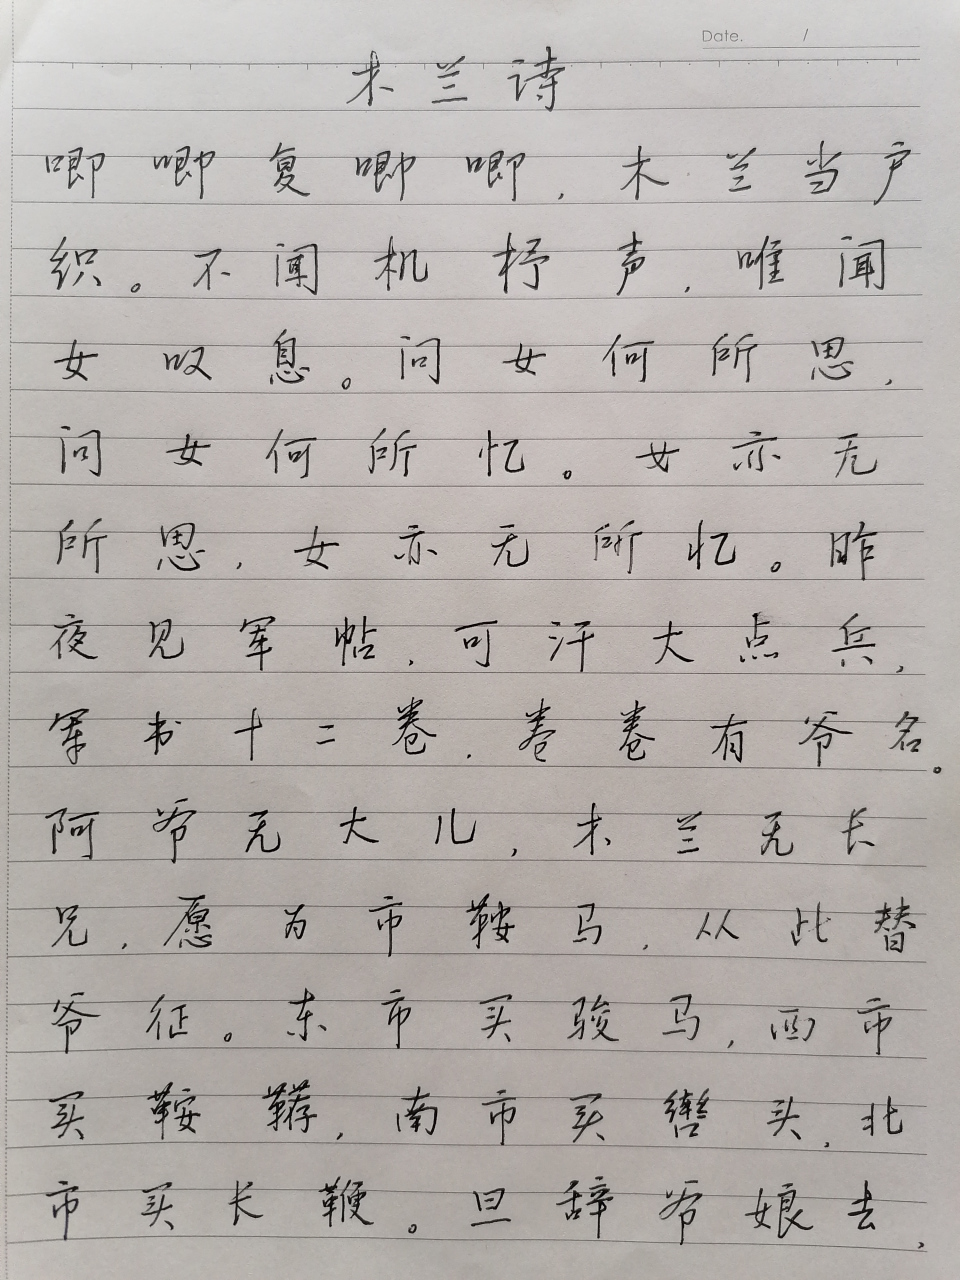 Date. /
木兰诗
唧唧复唧唧,木兰当户
织。不闻机杼声,唯闻
女叹息。问女何所思,
问女何所忆。女亦无
所思,女亦无所忆。昨
夜见军帖,可汗大点兵,
军书十二卷,卷卷有爷名。
阿爷无大儿,木兰无长
兄,愿为市鞍马,从此替
爷征。东市买骏马,西市
买鞍鞯,南市买辔头,北
市买长鞭。旦辞爷娘去,